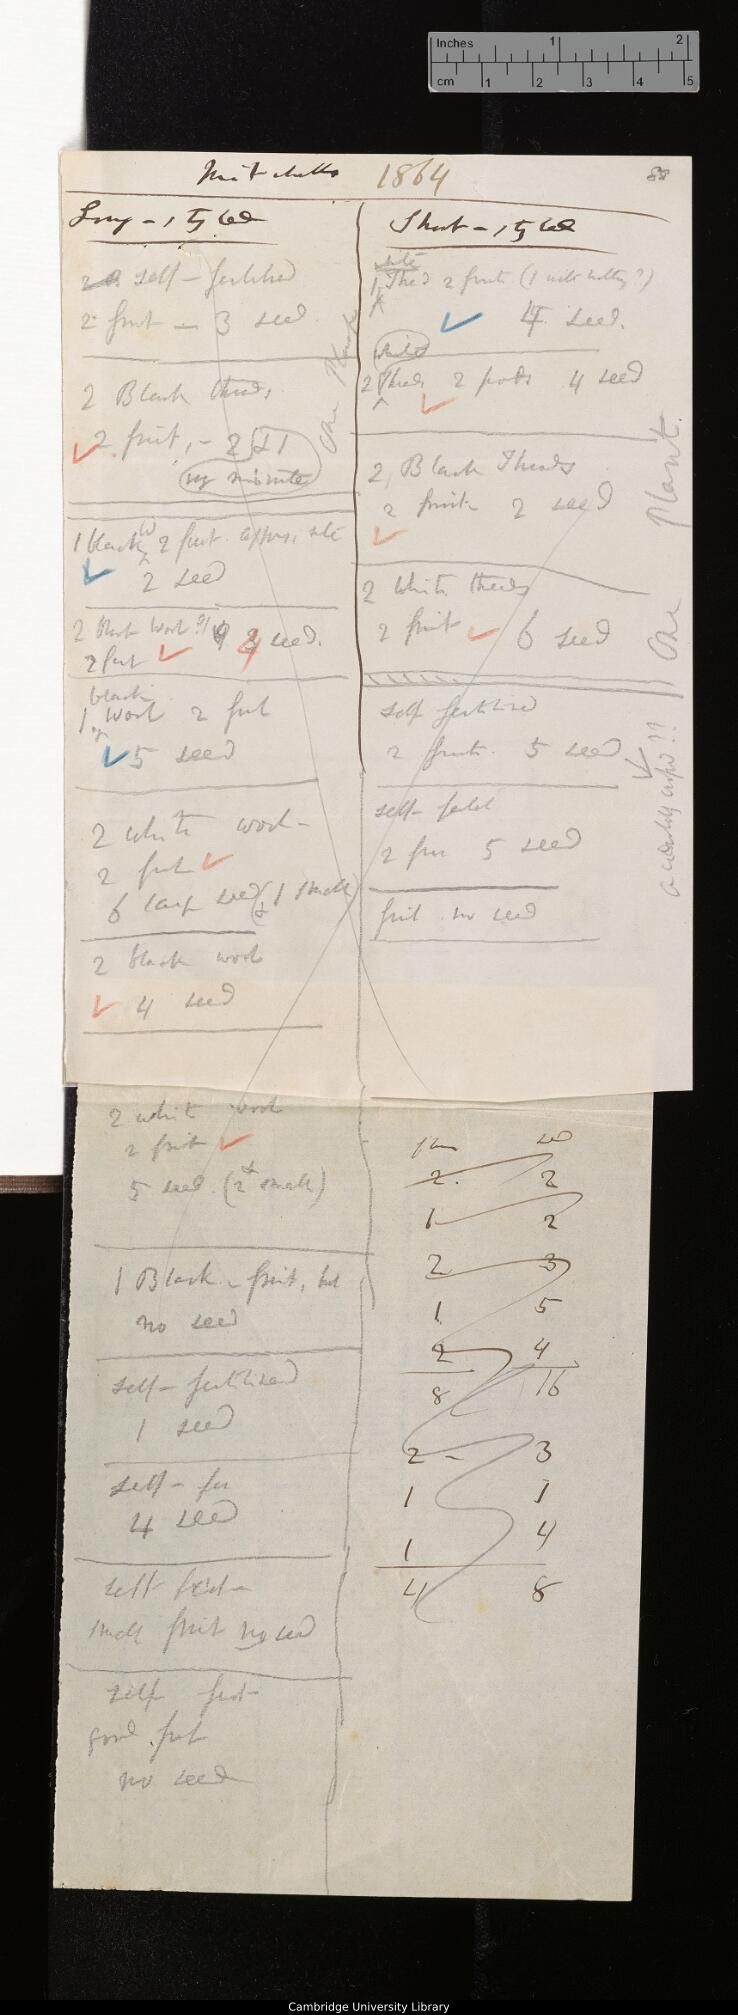 Inches 1 2
cm 1 2 3 4 5
Mitchella 1864
88
Long-styled
self-fertilised
2 fruit — 3 seed
2 Black threads
2 fruit, - 2 & 1
minute
One Plant
1 black 2 fruit
2 seed
2 seed.
2 fruit
black
1 wool 2 fruit
5 seed
2 white wool-
2 fruit
6 large seed (& 1 small)
2 black wool
4 seed
2 white wool
2 fruit
5 seed (2 small)
1 Black - fruit, but
no seed
self-fertilised
1 seed
self-fer
4 seed
self fert-
small fruit no seed
self fert-
good fruit
no seed
Short-styled
white
1 Thread 2 fruit (1 with nothing?)
4 seed.
white
2 Threads 2 pods 4 seed
2, Black Threads
2 fruit 2 seed
2 White threads
2 fruit 6 seed
One Plant.
self fertilised
2 fruit. 5 seed
self-fertd
2 fru 5 seed
fruit no seed
2. 2
1 2
2 3
1 5
2 4
8 16
2 - 3
1 1
1 4
4 8
Cambridge University Library